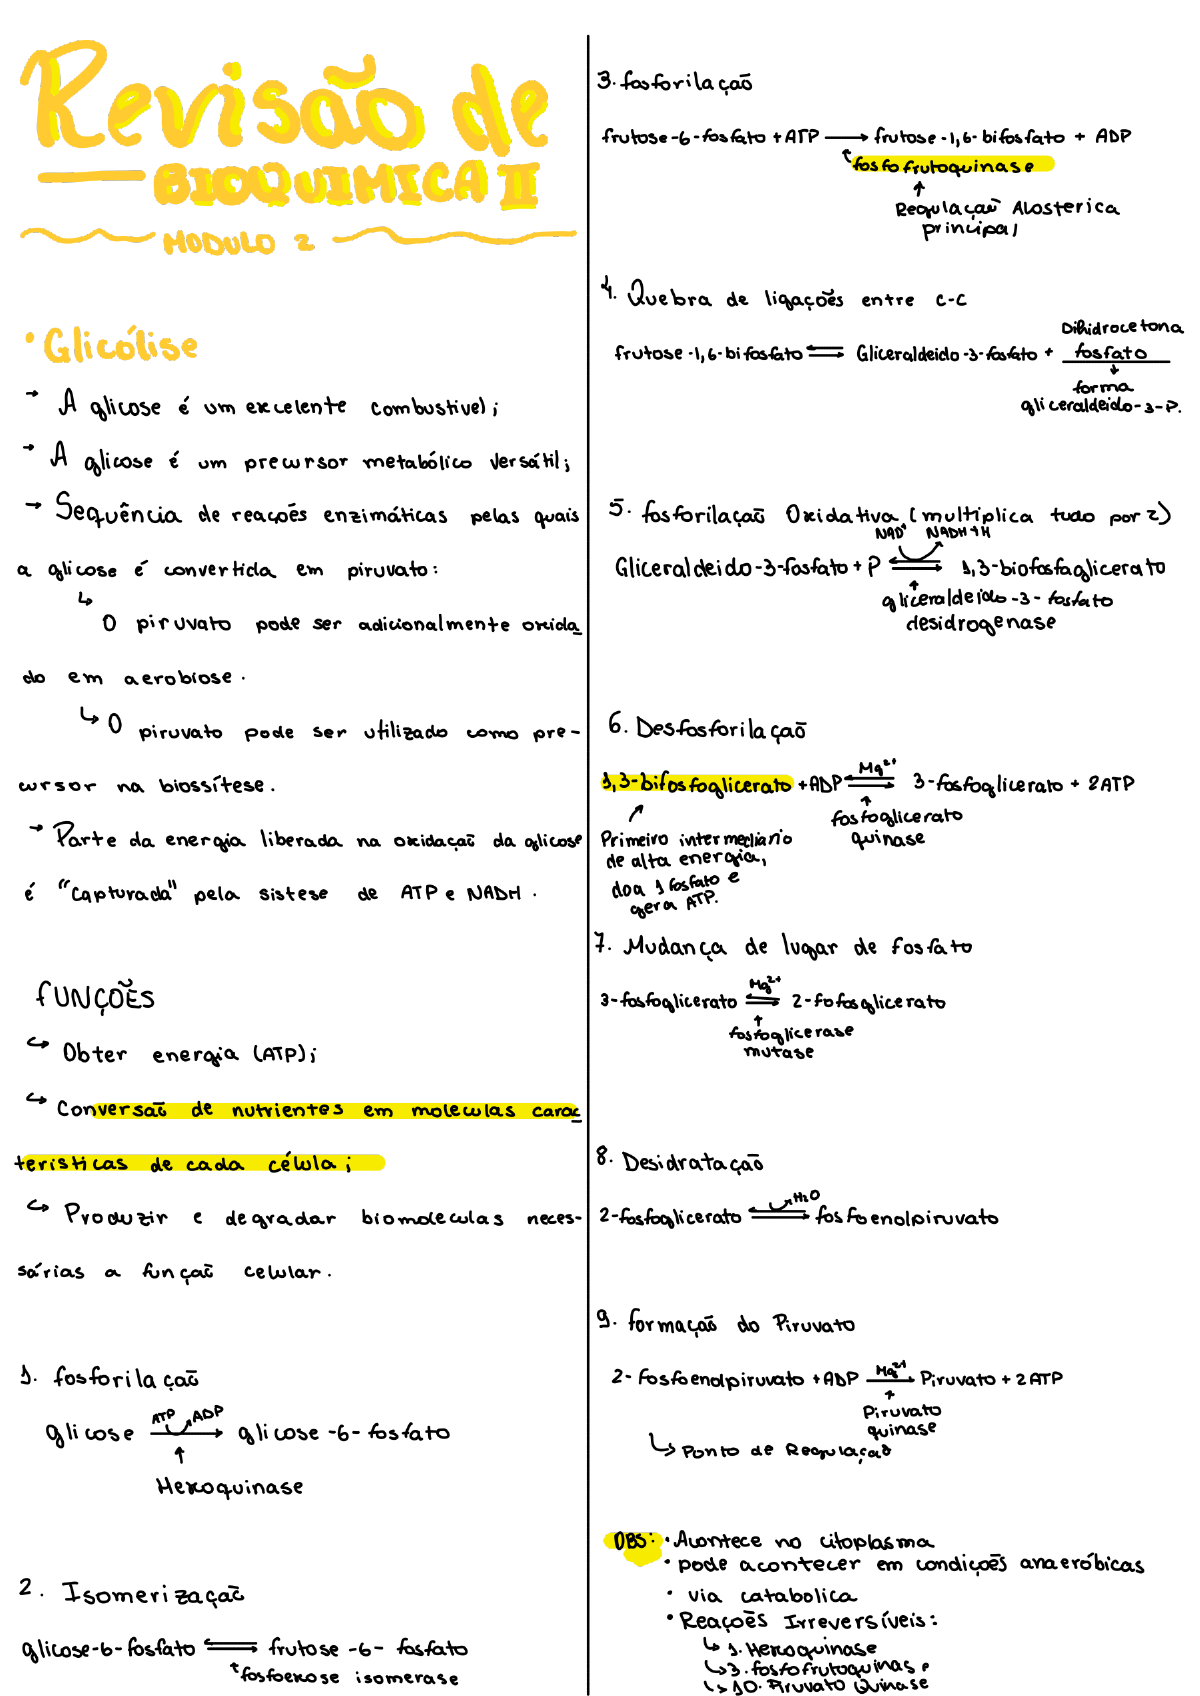 Revisão de
BIOQUIMICA II
MODULO 2
• Glicólise
→ A glicose é um excelente combustivel;
→ A glicose é um precursor metabólico versátil;
→ Sequência de reações enzimáticas pelas quais
a glicose é convertida em piruvato:
↳ O piruvato pode ser adicionalmente oxida
do em aerobiose.
↳ O piruvato pode ser utilizado como pre-
cursor na biossítese.
→ Parte da energia liberada na oxidação da glicose
é "capturada" pela sistese de ATP e NADH.
FUNÇÕES
↳ Obter energia (ATP);
↳ Conversão de nutrientes em moleculas carac
teristicas de cada célula;
↳ Produzir e degradar biomoleculas neces-
sárias a função celular.
1. fosforilação
ATP ADP
glicose → glicose-6-fosfato
↑
Hexoquinase
2. Isomerização
glicose-6-fosfato ⇌ frutose-6-fosfato
↑ fosfoexose isomerase
3. fosforilação
frutose-6-fosfato + ATP → frutose-1,6-bifosfato + ADP
↑ fosfofrutoquinase
↑
Regulação Alosterica
principal
4. Quebra de ligações entre C-C
Dihidrocetona
frutose-1,6-bifosfato ⇌ Gliceraldeido-3-fosfato + fosfato
↓
forma
gliceraldeido-3-P.
5. fosforilação Oxidativa (multiplica tudo por 2)
NAD⁺ NADH+H
Gliceraldeido-3-fosfato + P ⇌ 1,3-biofosfaglicerato
↑
gliceraldeido-3-fosfato
desidrogenase
6. Desfosforilação
Mg²⁺
1,3-bifosfoglicerato + ADP ⇌ 3-fosfoglicerato + 2ATP
↑
fosfoglicerato
quinase
Primeiro intermediario
de alta energia,
doa 1 fosfato e
gera ATP.
7. Mudança de lugar de fosfato
Mg²⁺
3-fosfoglicerato ⇌ 2-fofosglicerato
↑
fosfoglicerase
mutase
8. Desidratação
H₂O
2-fosfoglicerato ⇌ fosfoenolpiruvato
9. formação do Piruvato
Mg²⁺
2-fosfoenolpiruvato + ADP → Piruvato + 2ATP
↑
Piruvato
quinase
↳ Ponto de Regulação
OBS: • Acontece no citoplasma
• pode acontecer em condições anaeróbicas
• via catabolica
• Reações Irreversíveis:
↳ 1. Hexoquinase
↳ 3. fosfofrutoquinase
↳ 10. Piruvato Quinase